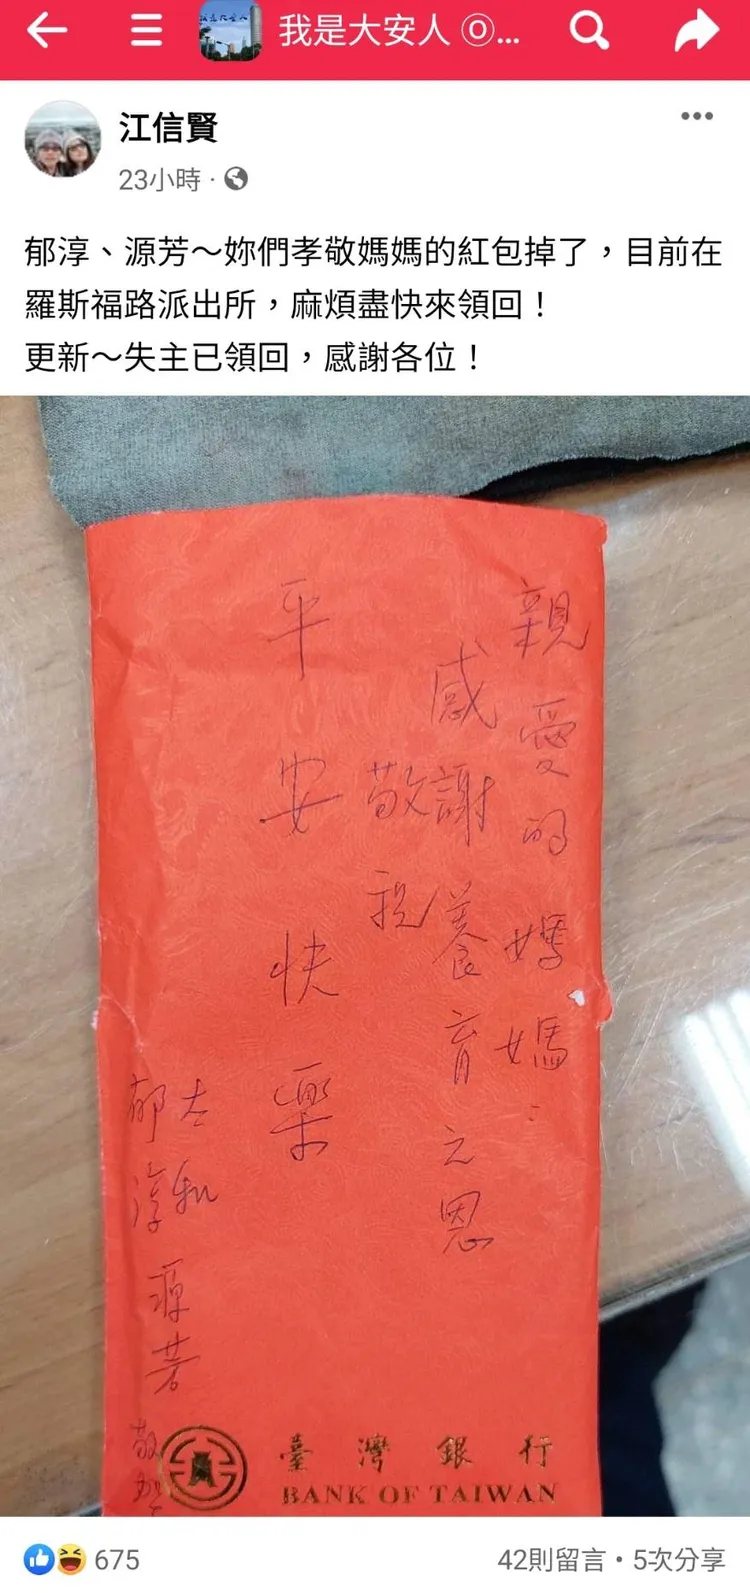 我是大安人 ⓞ...
江信賢
23小時
郁淳、源芳～妳們孝敬媽媽的紅包掉了，目前在
羅斯福路派出所，麻煩盡快來領回！
更新～失主已領回，感謝各位！
親愛的媽媽：
感謝養育之恩
敬祝
平安快樂
郁淳 源芳 敬
臺灣銀行
BANK OF TAIWAN
675
42則留言・5次分享